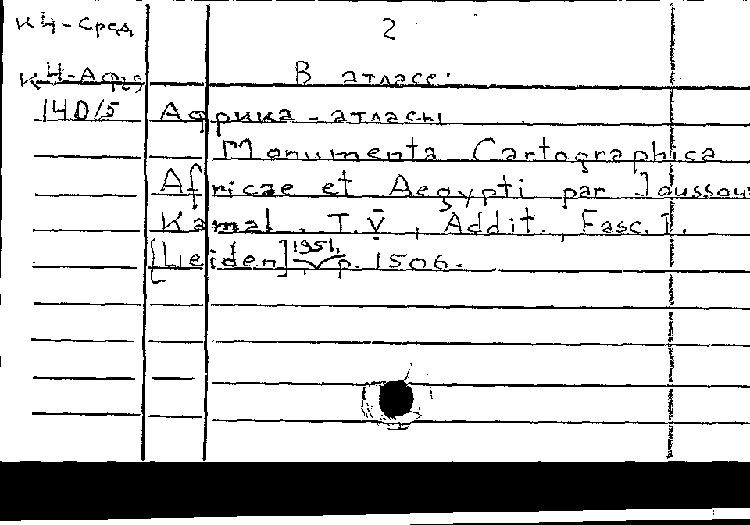 К4-Сред 2
К4-Афр В атласе:
14D/5 Африка - атласы
Monumenta Cartographica
Africae et Aegypti par Joussou
Kamal. T. V̄, Addit., Fasc. I.
[Leiden], 1951, p. 1506.